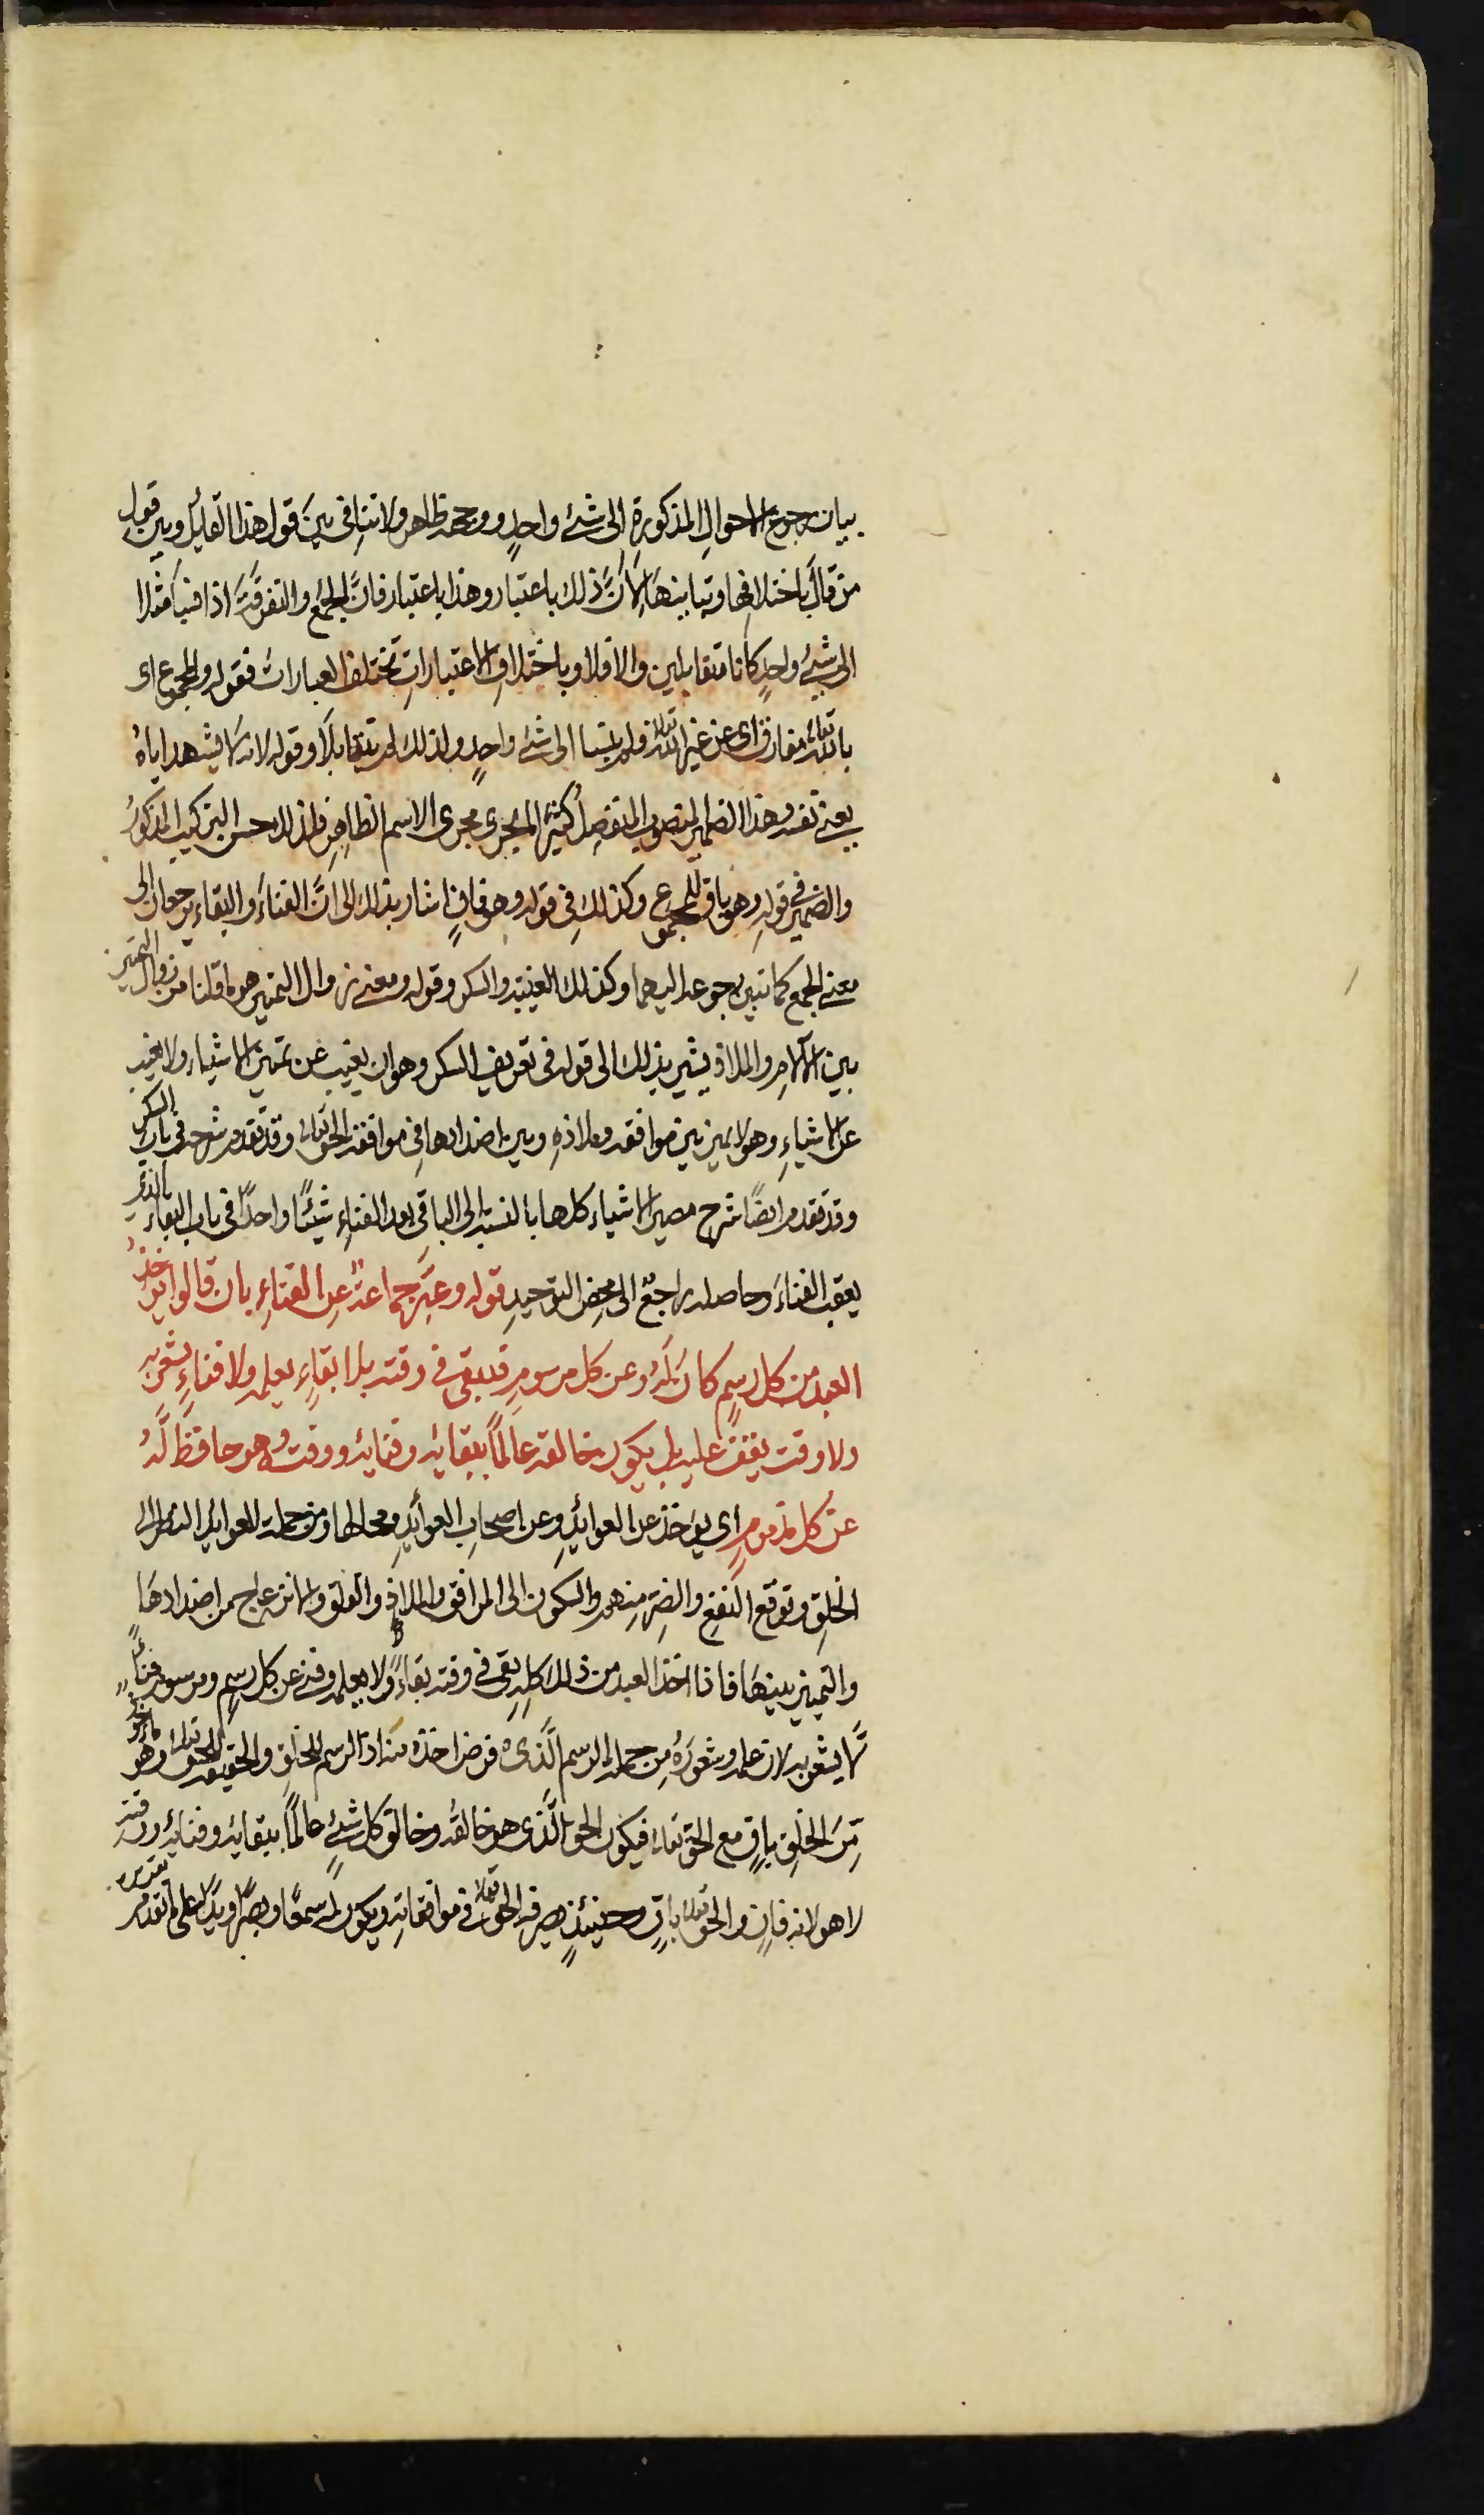 بيان رجوع الاحوال المذكورة الى شئ واحد ووجهه ظاهر ولا تنافى بين قول هذا القايل وبين قول
من قال باختلافها وتباينها لان ذلك باعتبار وهذا باعتبار فان الجمع والتفرقة اذا فنيا مثلا
الى شئ واحد كانا متقابلين والا فلا وباختلاف الاعتبارات تختلف العبارات فقوله والمجموع اى
بالله تعالى مفارق اى عن غير الله تعالى فلم ينسبا الى شئ واحد ولذلك لم يتقابلا وقوله لانه لا يشهد اياه
يعنى نفسه وهذا الضمير المنصوب المنفصل كثيرا ما يجرى مجرى الاسم الظاهر فلذلك حسن التركيب المذكور
والضمير فى قوله وهو باق للمجموع وكذلك فى قوله وهو فان اشار بذلك الى ان الفناء والبقاء يرجعان الى
معنى الجمع كما تبين رجوعه اليهما وكذلك الغيبة والسكر وقوله ومعنى زوال التميز هو ما قلنا من زوال التميز
بين الآلام والملاذ يشير بذلك الى قوله فى تعريف السكر وهو ان يغيب عن تميز الاشياء ولا يغيب
عن الاشياء وهو لا يميز بين موافقه وملاذه وبين اضدادها فى موافقة الحق تعالى وقد تقدم شرحه فى باب السكر
وقد تقدم ايضا شرح مصير الاشياء كلها بالنسبة الى الباقى بعد الفناء شيئا واحدا فى باب البقاء الذى
يعقب الفناء وحاصله راجع الى محض التوحيد قوله وعبر جماعة عن الفناء بان قالوا يؤخذ
العبد من كل رسم كان له وعن كل مرسوم فيبقى فى وقته بلا بقاء يعلمه ولا فناء يشعر به
ولا وقت يقف عليه بل يكون خالقه عالما ببقائه وفنائه ووقته وهو حافظ له
عن كل مذموم اى يؤخذ عن العوائد وعن اصحاب العوائد ومحالها ومن جملة العوائد النظر الى
الخلق وتوقع النفع والضر منهم والسكون الى المرافق والملاذ والقلق والانزعاج من اضدادها
والتميز بينها فاذا اخذ العبد من ذلك كله بقى فى وقته بقاء ولا يعلمه وفنى عن كل رسم ومرسوم فناء
لا يشعر به لان علمه وشعوره من جملة الرسم الذى فرض اخذه منه اذ الرسم للخلق والحقيقة للحق تعالى وهو ماخوذ
من الخلق باق مع الحق تعالى فيكون الحق الذى هو خالقه وخالق كل شئ عالما ببقائه وفنائه ووقته
لا هو لانه فان والحق تعالى باق وحينئذ يصرفه الحق تعالى فى موافقاته ويكون له سمعا وبصرا ويدا على ما تقدم تقديره